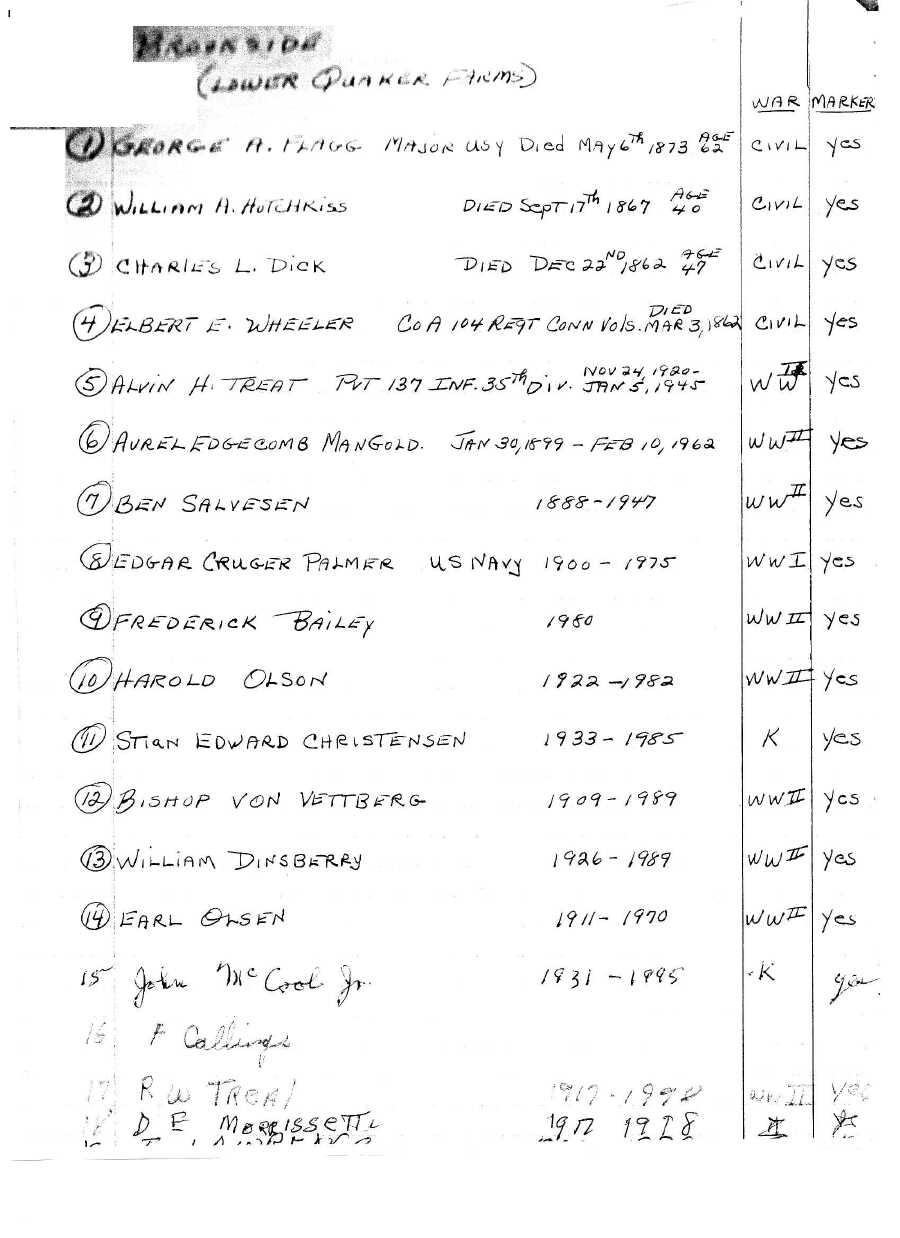 BROOKSIDE
(LOWER QUAKER FARMS)
WAR MARKER
1 GEORGE A. FLAGG MAJOR USY Died MAY 6th 1873 AGE 62 CIVIL yes
2 WILLIAM A. HOTCHKISS DIED SepT 17th 1867 AGE 40 CIVIL yes
3 CHARLES L. DICK DIED DEC 22ND, 1862 AGE 47 CIVIL yes
4 ELBERT E. WHEELER CO A 104 REGT CONN Vols. DIED MAR 3, 1862 CIVIL yes
5 ALVIN H. TREAT PVT 137 INF. 35th Div. NOV 24, 1920 - JAN 5, 1945 WW II yes
6 AUREL EDGECOMB MANGOLD. JAN 30, 1899 - FEB 10, 1962 WW II yes
7 BEN SALVESEN 1888 - 1947 WW II yes
8 EDGAR CRUGER PALMER US NAVY 1900 - 1975 WW I yes
9 FREDERICK BAILEY 1980 WW II yes
10 HAROLD OLSON 1922 - 1982 WW II yes
11 STIAN EDWARD CHRISTENSEN 1933 - 1985 K yes
12 BISHOP VON VETTBERG 1909 - 1989 WW II yes
13 WILLIAM DINSBERRY 1926 - 1989 WW II yes
14 EARL OLSEN 1911 - 1970 WW II yes
15 John McCool Jr. 1931 - 1995 K yes
16 F Callings
17 R W TREAT 1917 - 1998 WW II yes
18 D E MORRISSETTE